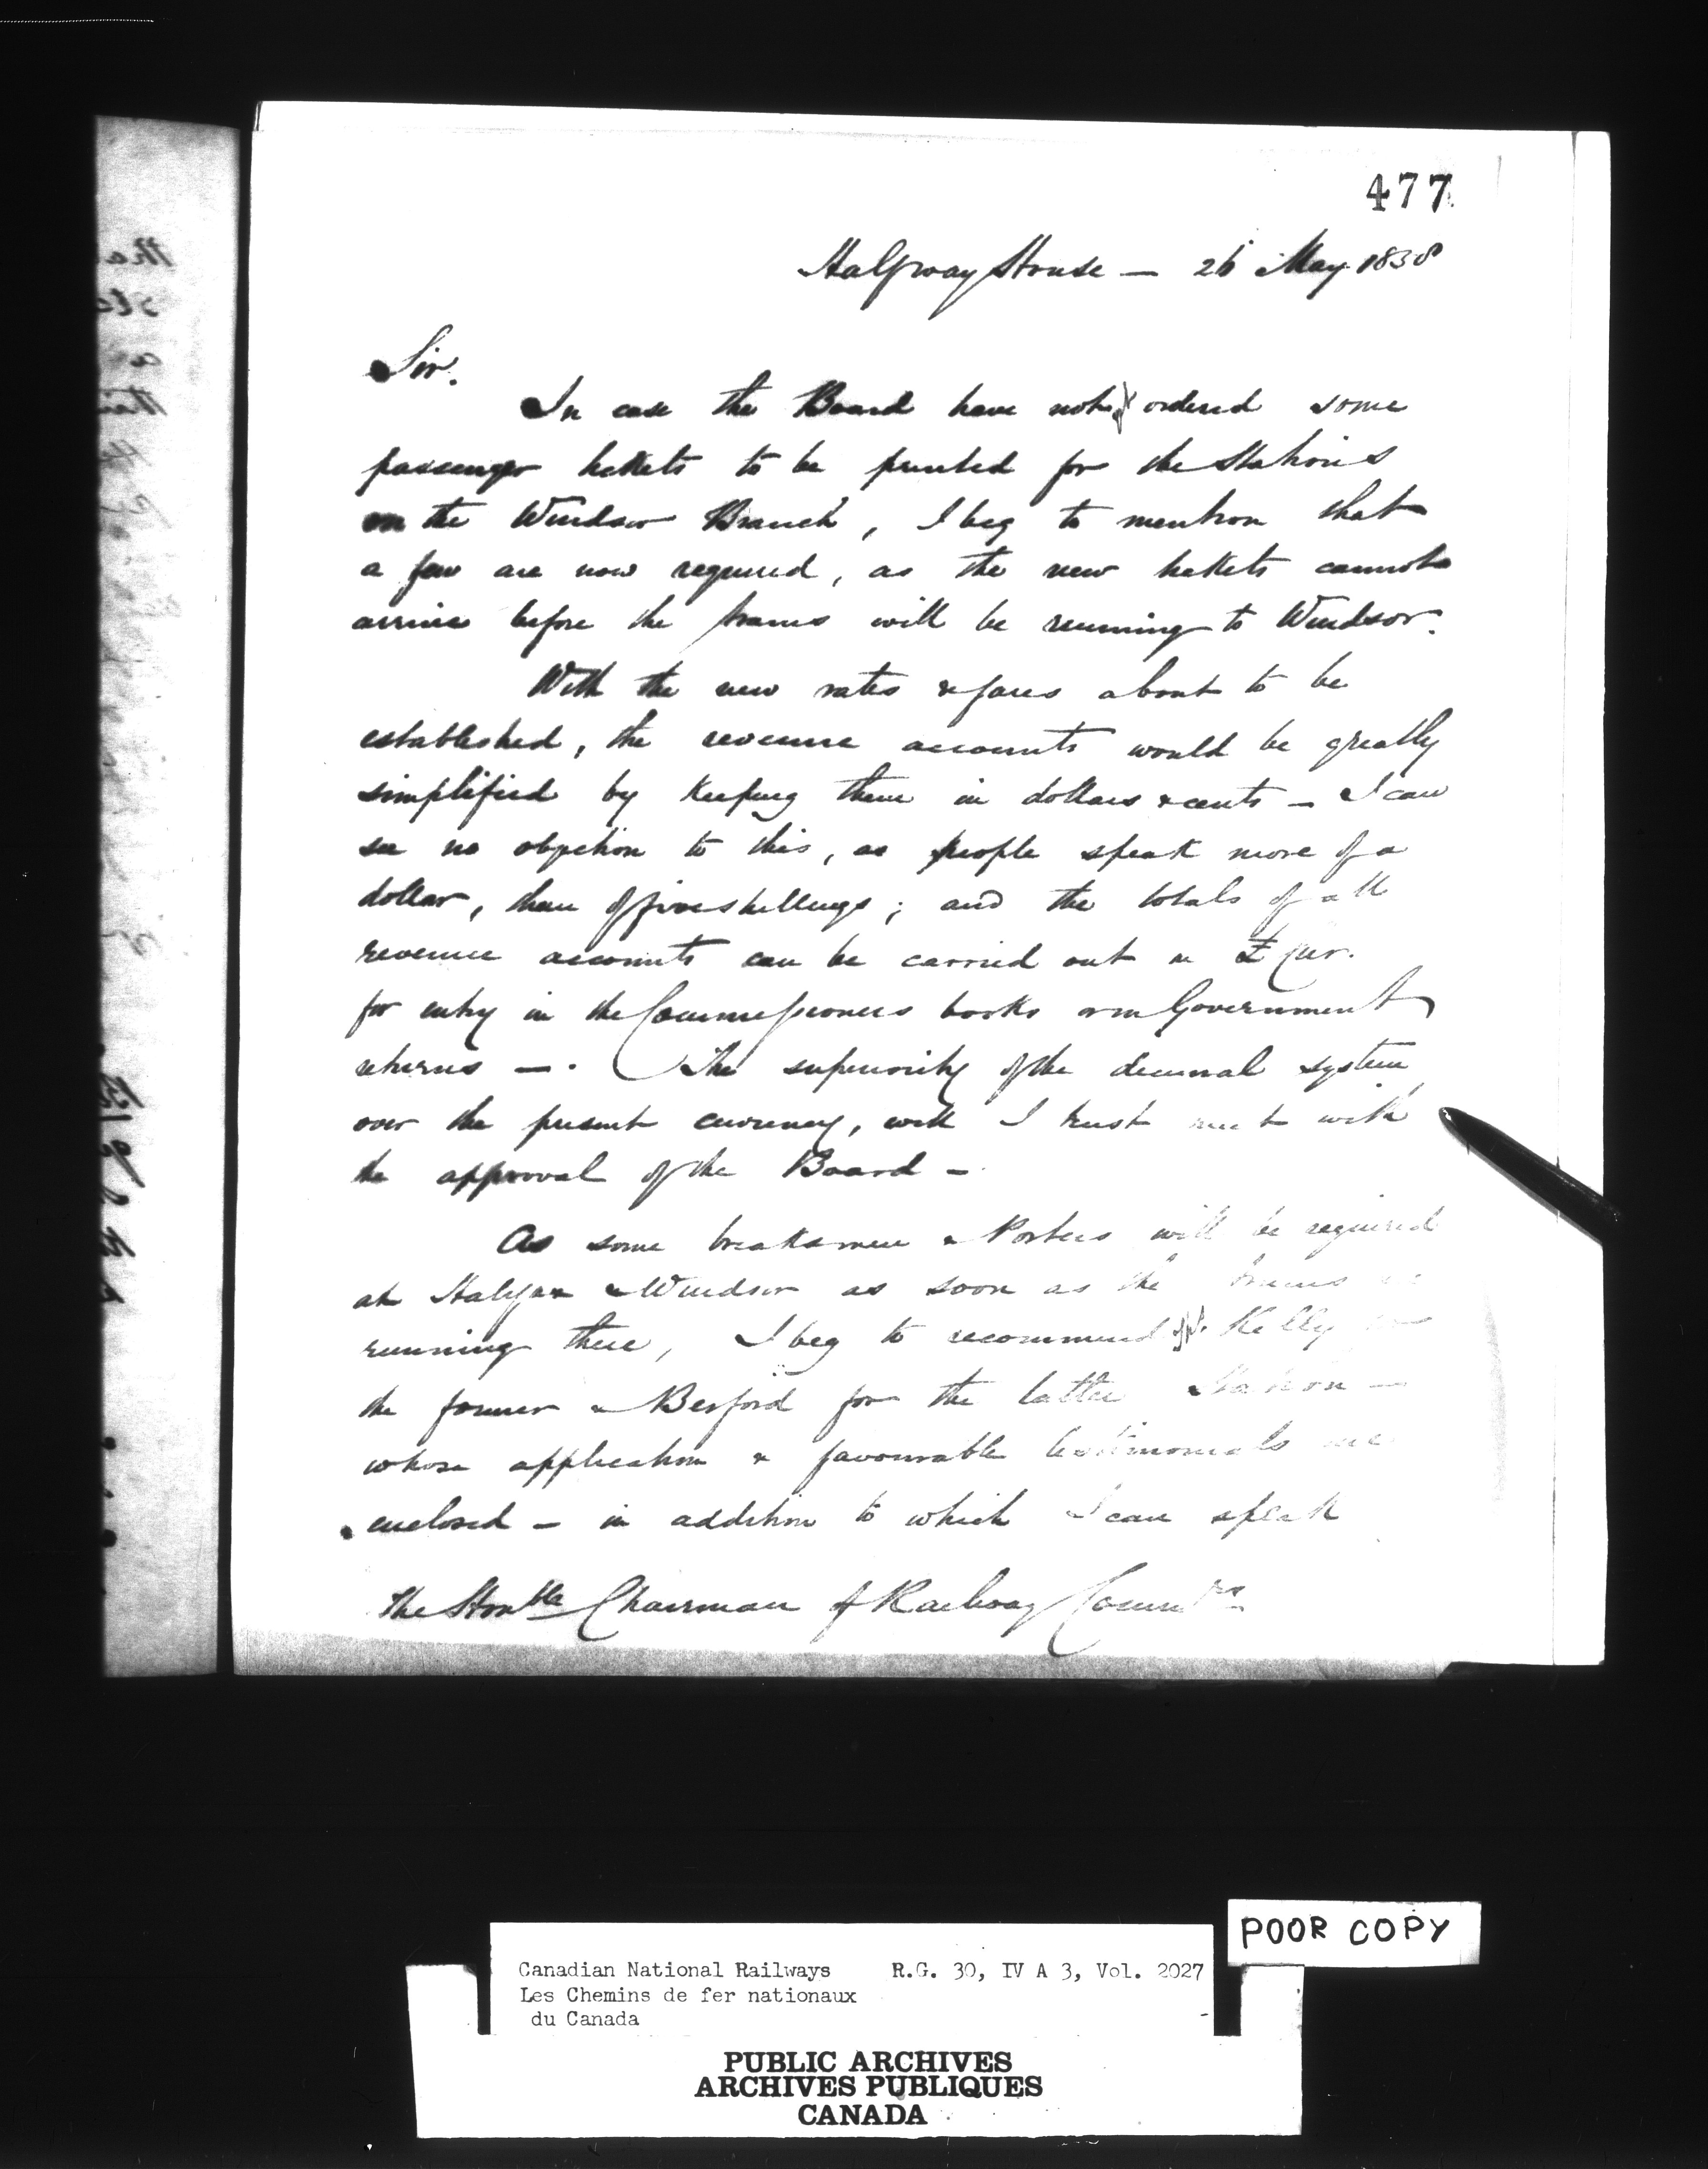 477
Halfway House — 26 May 1858
Sir.
In case the Board have not ordered some
passenger tickets to be printed for the Stations
on the Windsor Branch, I beg to mention that
a few are now required, as the new tickets cannot
arrive before the trains will be running to Windsor.
With the new rates & fares about to be
established, the revenue accounts would be greatly
simplified by keeping them in dollars & cents — I can
see no objection to this, as people speak more of a
dollar, than of five shillings; and the totals of all
revenue accounts can be carried out in £ Cur.
for entry in the Commissioners books or in Government
returns —. The superiority of the decimal system
over the present currency, will I trust meet with
the approval of the Board —
As some breaksmen & Porters will be required
at Halifax & Windsor as soon as the trains
running there, I beg to recommend Kelly for
the former & Berford for the latter Station —
whose application & favourable testimonials are
enclosed — in addition to which I can speak
The Honble Chairman of Railway Commrs
POOR COPY
Canadian National Railways R.G. 30, IV A 3, Vol. 2027
Les Chemins de fer nationaux
du Canada
PUBLIC ARCHIVES
ARCHIVES PUBLIQUES
CANADA